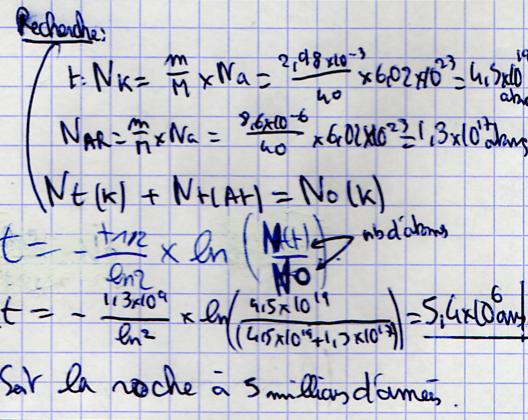 Recherche:
t: N_K = m/M × Na = 2,98×10^-3/40 × 6,02×10^23 = 4,5×10^19 atoms
N_AR = m/M × Na = 8,6×10^-6/40 × 6,02×10^23 = 1,3×10^17 atoms
Nt(K) + Nt(Ar) = N0(K)
t = - t1/2/ln2 × ln (N(t)/N0) nb d'atoms
t = - 1,3×10^9/ln2 × ln(4,5×10^19/((4,5×10^19+1,3×10^17)) = 5,4×10^6 ans
Soit la roche à 5 millions d'années.